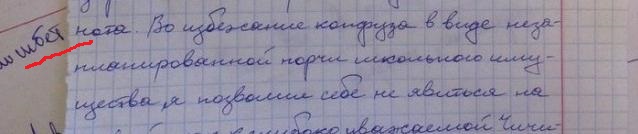 нота. Во избежание конфуза в виде неза-
планированной порчи школьного иму-
щества, я позволил себе не явиться на
уважаемой